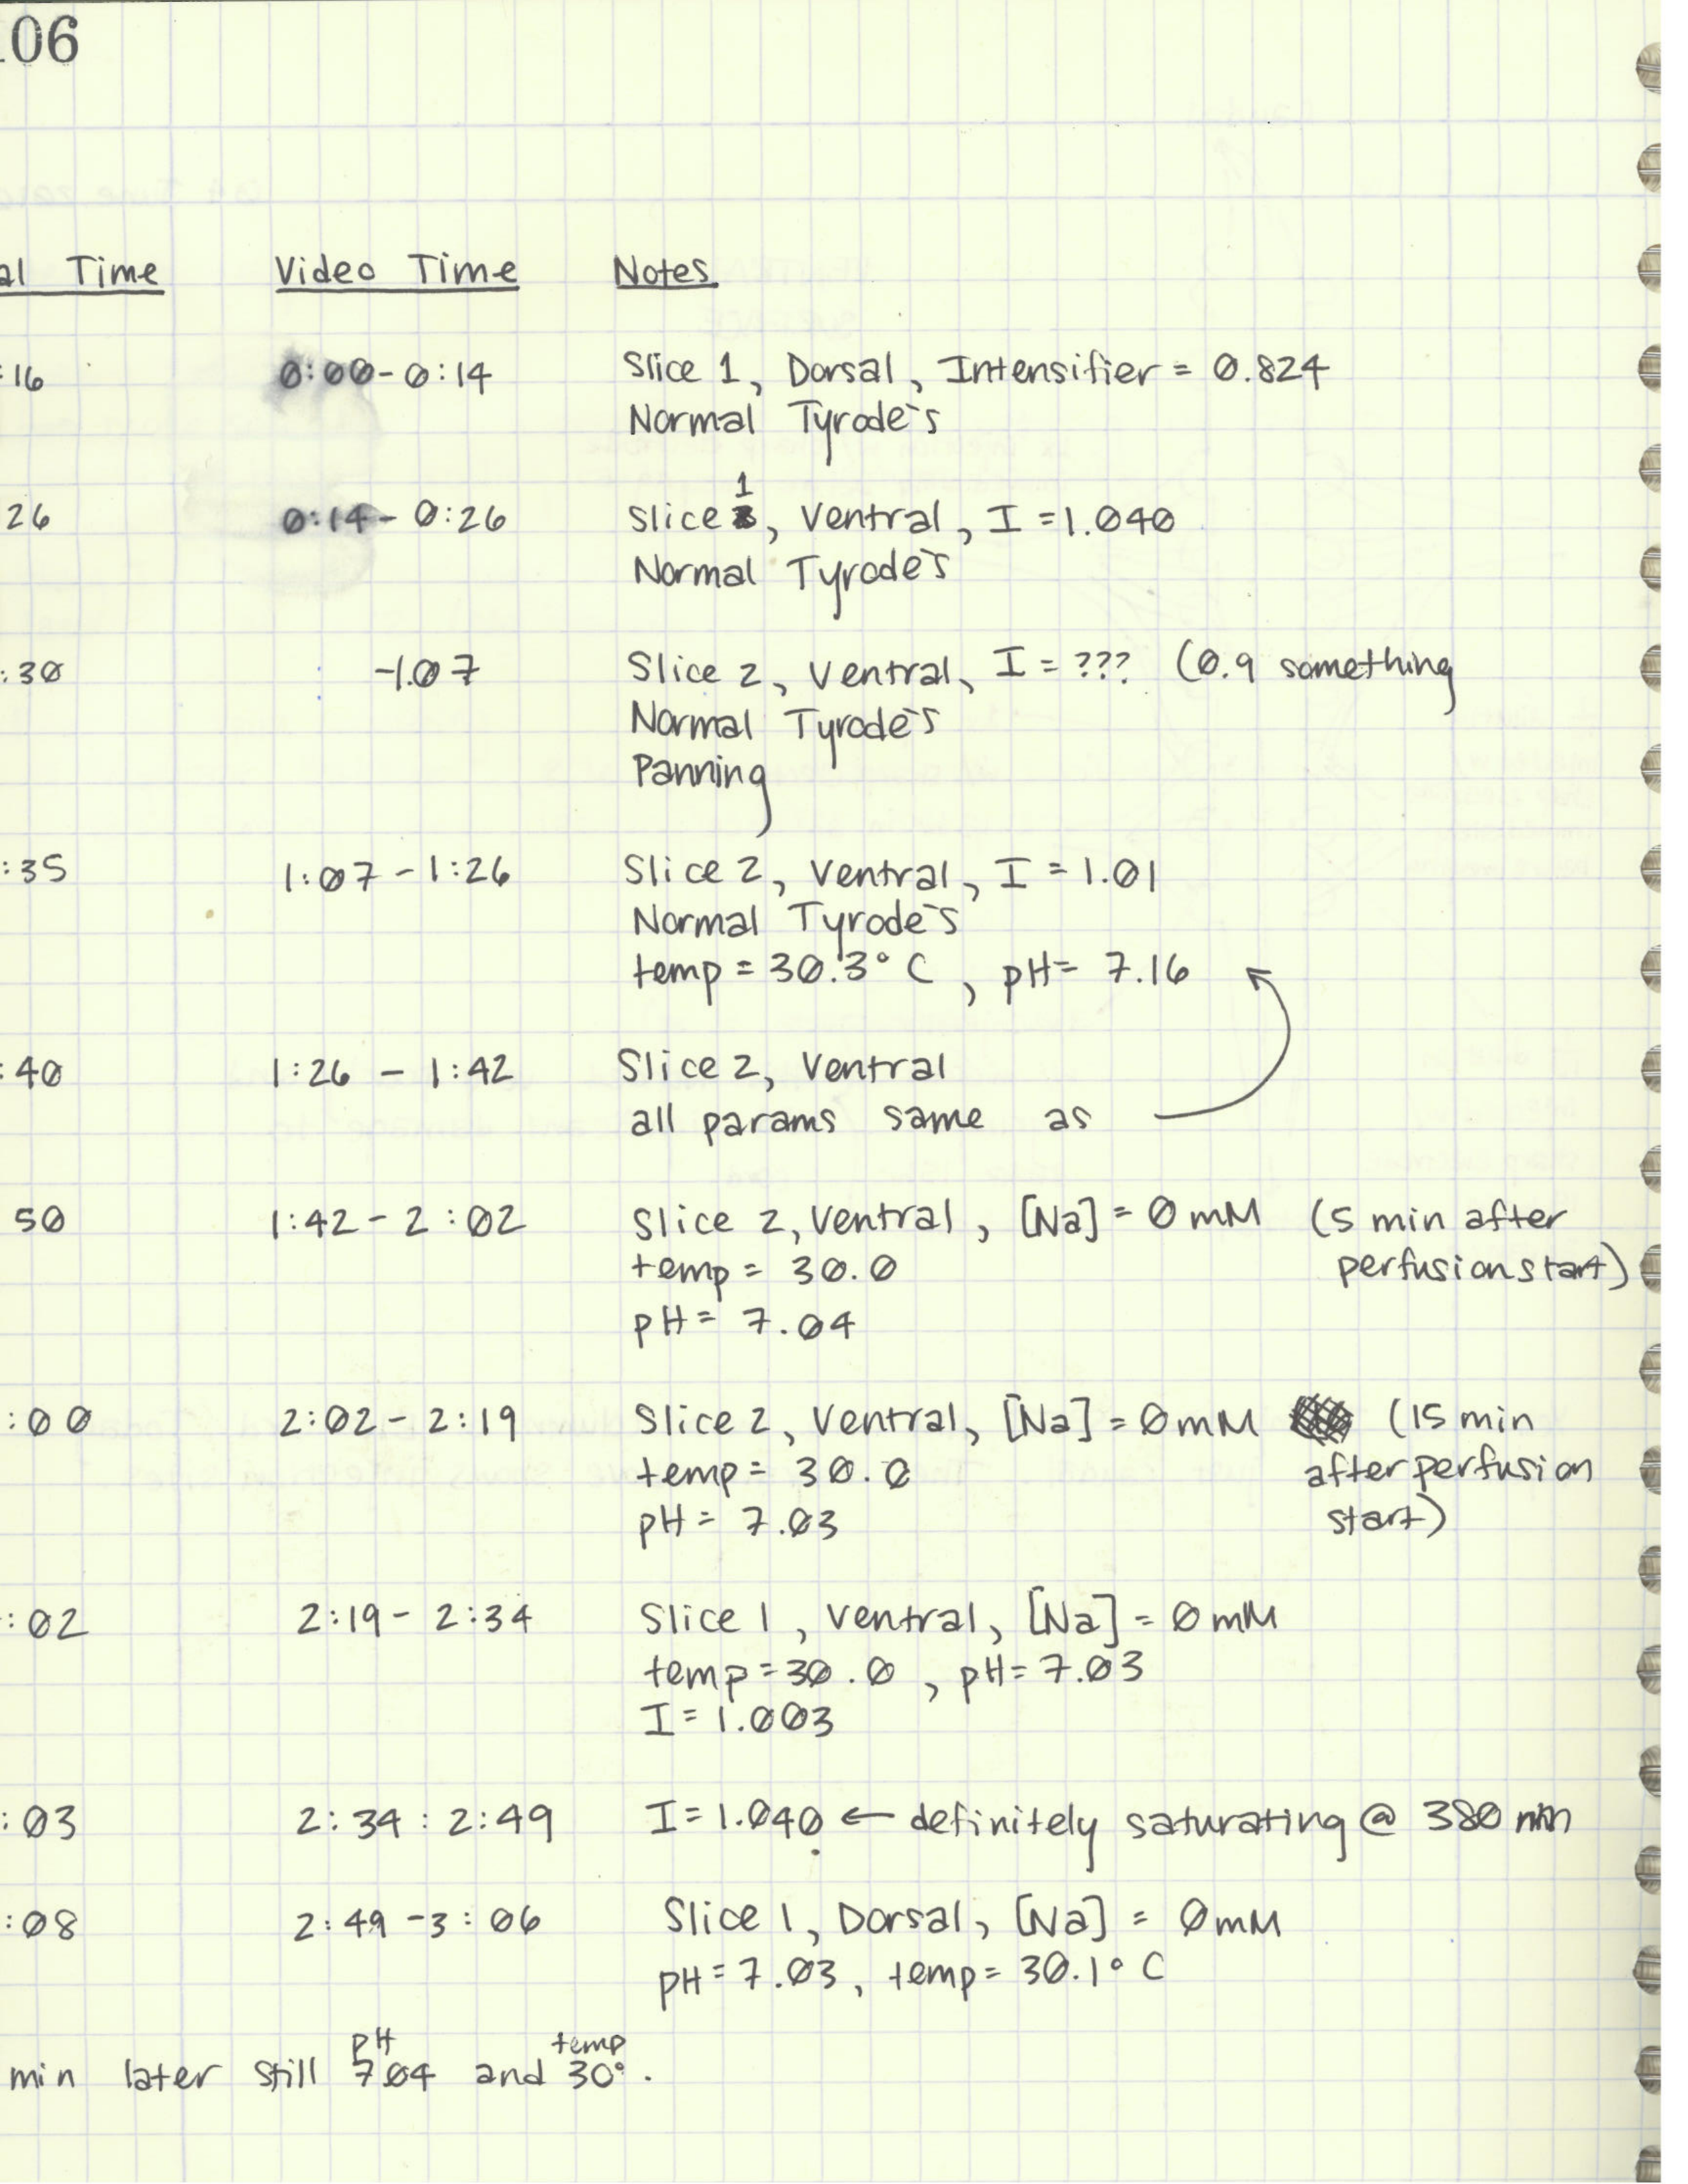 106
al Time Video Time Notes
:16 0:00-0:14 Slice 1, Dorsal, Intensifier = 0.824
Normal Tyrode's
26 0:14-0:26 Slice 1, Ventral, I = 1.040
Normal Tyrode's
:30 -1:07 Slice 2, Ventral, I = ??? (0.9 something
Normal Tyrode's
Panning
:35 1:07-1:26 Slice 2, Ventral, I = 1.01
Normal Tyrode's
temp = 30.3° C, pH = 7.16
:40 1:26 - 1:42 Slice 2, Ventral
all params same as
50 1:42-2:02 Slice 2, Ventral, [Na] = 0 mM (5 min after
temp = 30.0 perfusion start)
pH = 7.04
:00 2:02-2:19 Slice 2, Ventral, [Na] = 0mM (15 min
temp = 30.0 after perfusion
pH = 7.03 start)
:02 2:19-2:34 Slice 1, Ventral, [Na] = 0 mM
temp = 30.0, pH = 7.03
I = 1.003
:03 2:34 : 2:49 I = 1.040 ← definitely saturating @ 380 nm
:08 2:49-3:06 Slice 1, Dorsal, [Na] = 0mM
pH = 7.03, temp = 30.1° C
pH temp
min later still 7.04 and 30°.